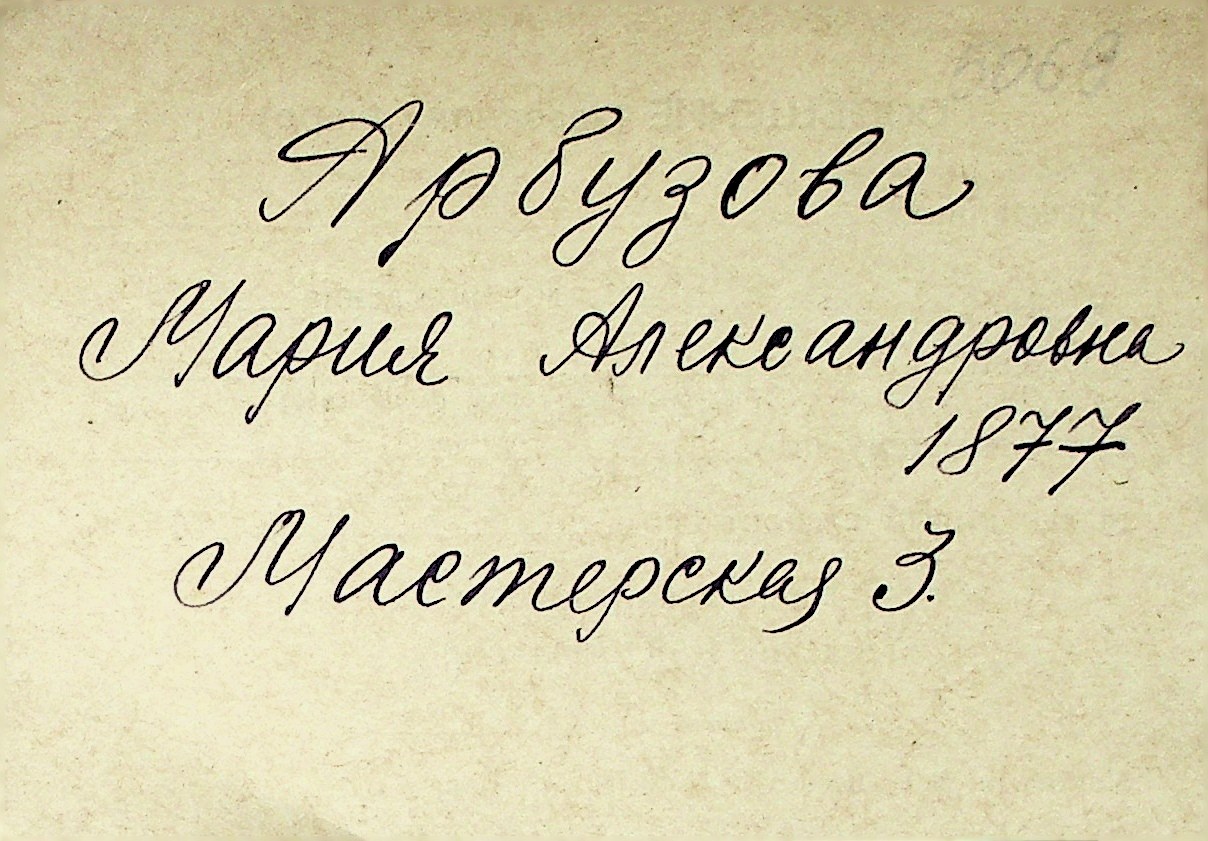 Арбузова
Мария Александровна
1877
Мастерская 3.